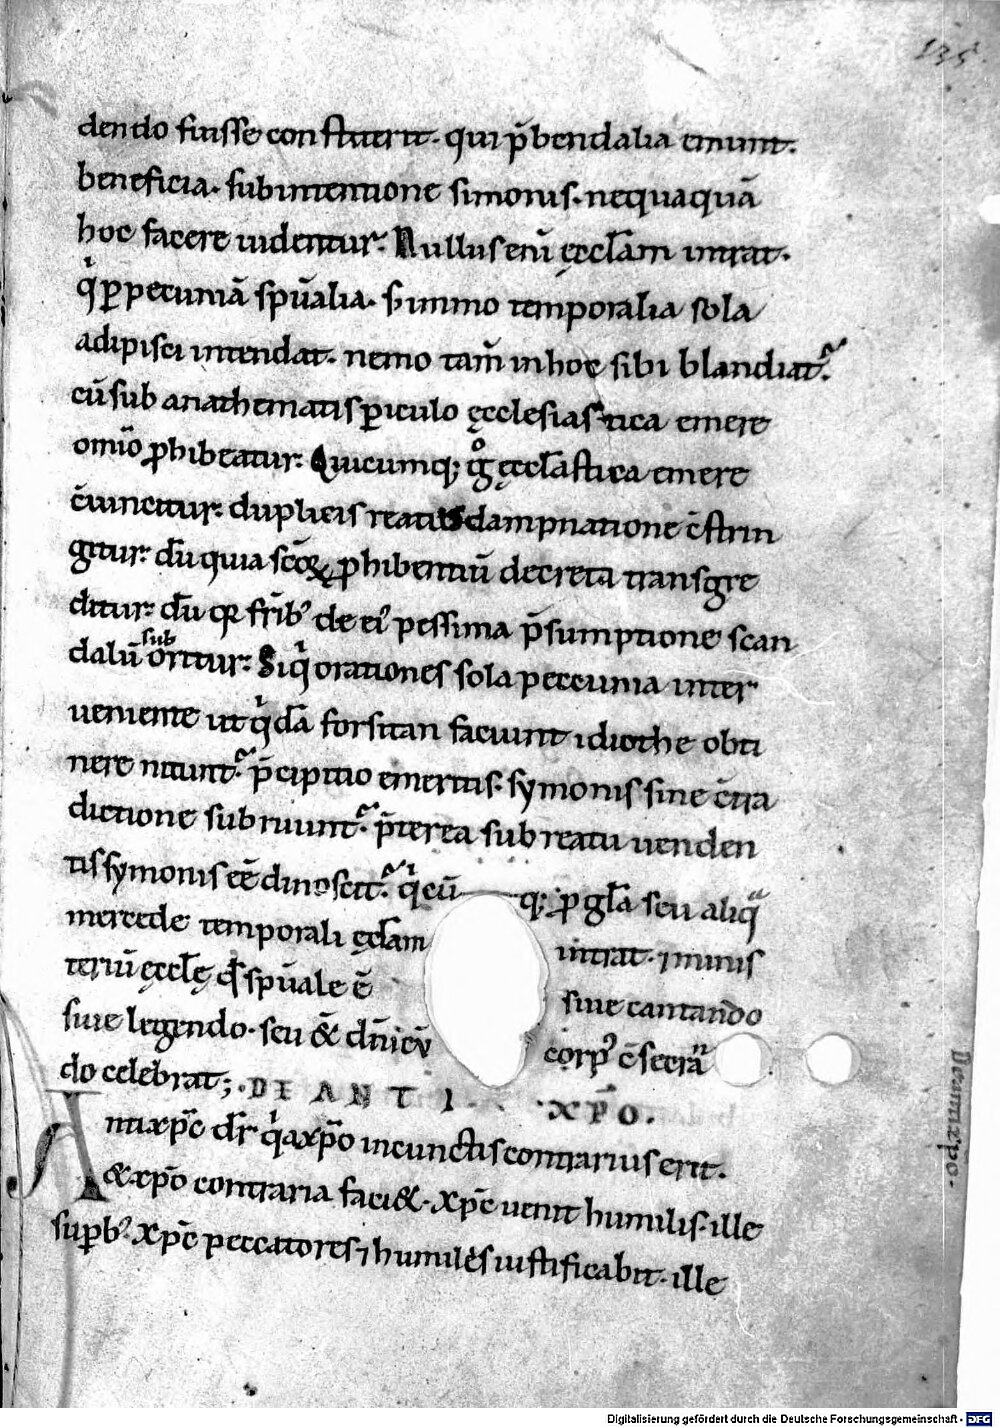 135.
dendo fuisse constiterit. qui p̄bendalia emunt.
beneficia. sub intentione simonis. nequaquā
hoc facere uidentur. Nullus enī ęccl̄am intrat.
qͥ ꝑ pecuniā sp̄ualia. s; immo temporalia sola
adipisci intendat. nemo tam̄ in hoc sibi blandiat᷑.
cū sub anathematis ꝑiculo ęcclesiastica emere
om̄io ꝓhibeatur. Quicumq; gͦ ęccl̄astica emere
c̄uincitur. duplicis reatus dampnatione c̄strin
gitur. dū quia sc̄oꝝ ꝓhibentiū decreta transgre
ditur. dū qꝛ fr̄ibꝰ de eiꝰ pessima p̄sumptione scan
dalū suboritur. Si qͥ orationes sola peccunia inter
ueniente ut qͥdā forsitan faciunt idiothe obti
nere nitunt᷑. p̄cipitio emertis. symonis sine c̄tra
dictione subruunt᷑. p̄terea sub reatu uenden
tis symonis eē dinoscit᷑. qͥcū q; ꝓ gl̄a seu aliqͣ
mercede temporali ęccl̄am intrat. ⁊ minis
teriū ęccl̄ę qd̄ sp̄uale ē siue cantando
siue legendo. seu & dn̄icū corpꝰ c̄secran
do celebrat;. DE ANTI. .XP̄O.
Antixp̄c dr̄ qͥa xp̄o in cunctis contrarius erit.
& xp̄o contraria faci&. xp̄c uenit humilis. ille
suꝑbꝰ. xp̄c peccatores ⁊ humiles iustificabit. ille
De antixp̄o.
Digitalisierung gefördert durch die Deutsche Forschungsgemeinschaft - DFG